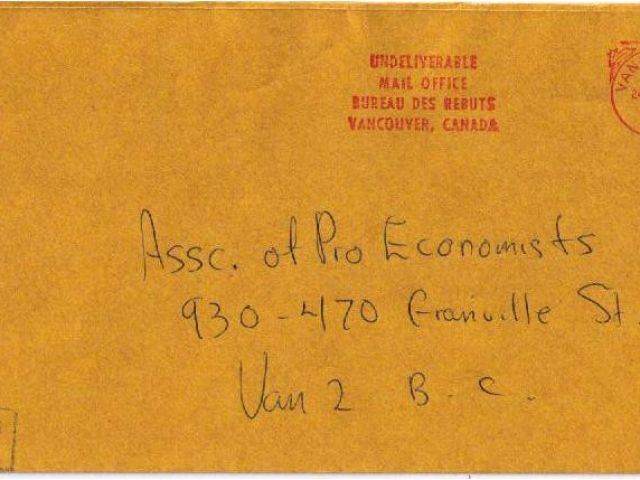 UNDELIVERABLE
MAIL OFFICE
BUREAU DES REBUTS
VANCOUVER, CANADA
VAN
Assc. of Pro Economists
930-470 Granville St
Van 2 B. C.